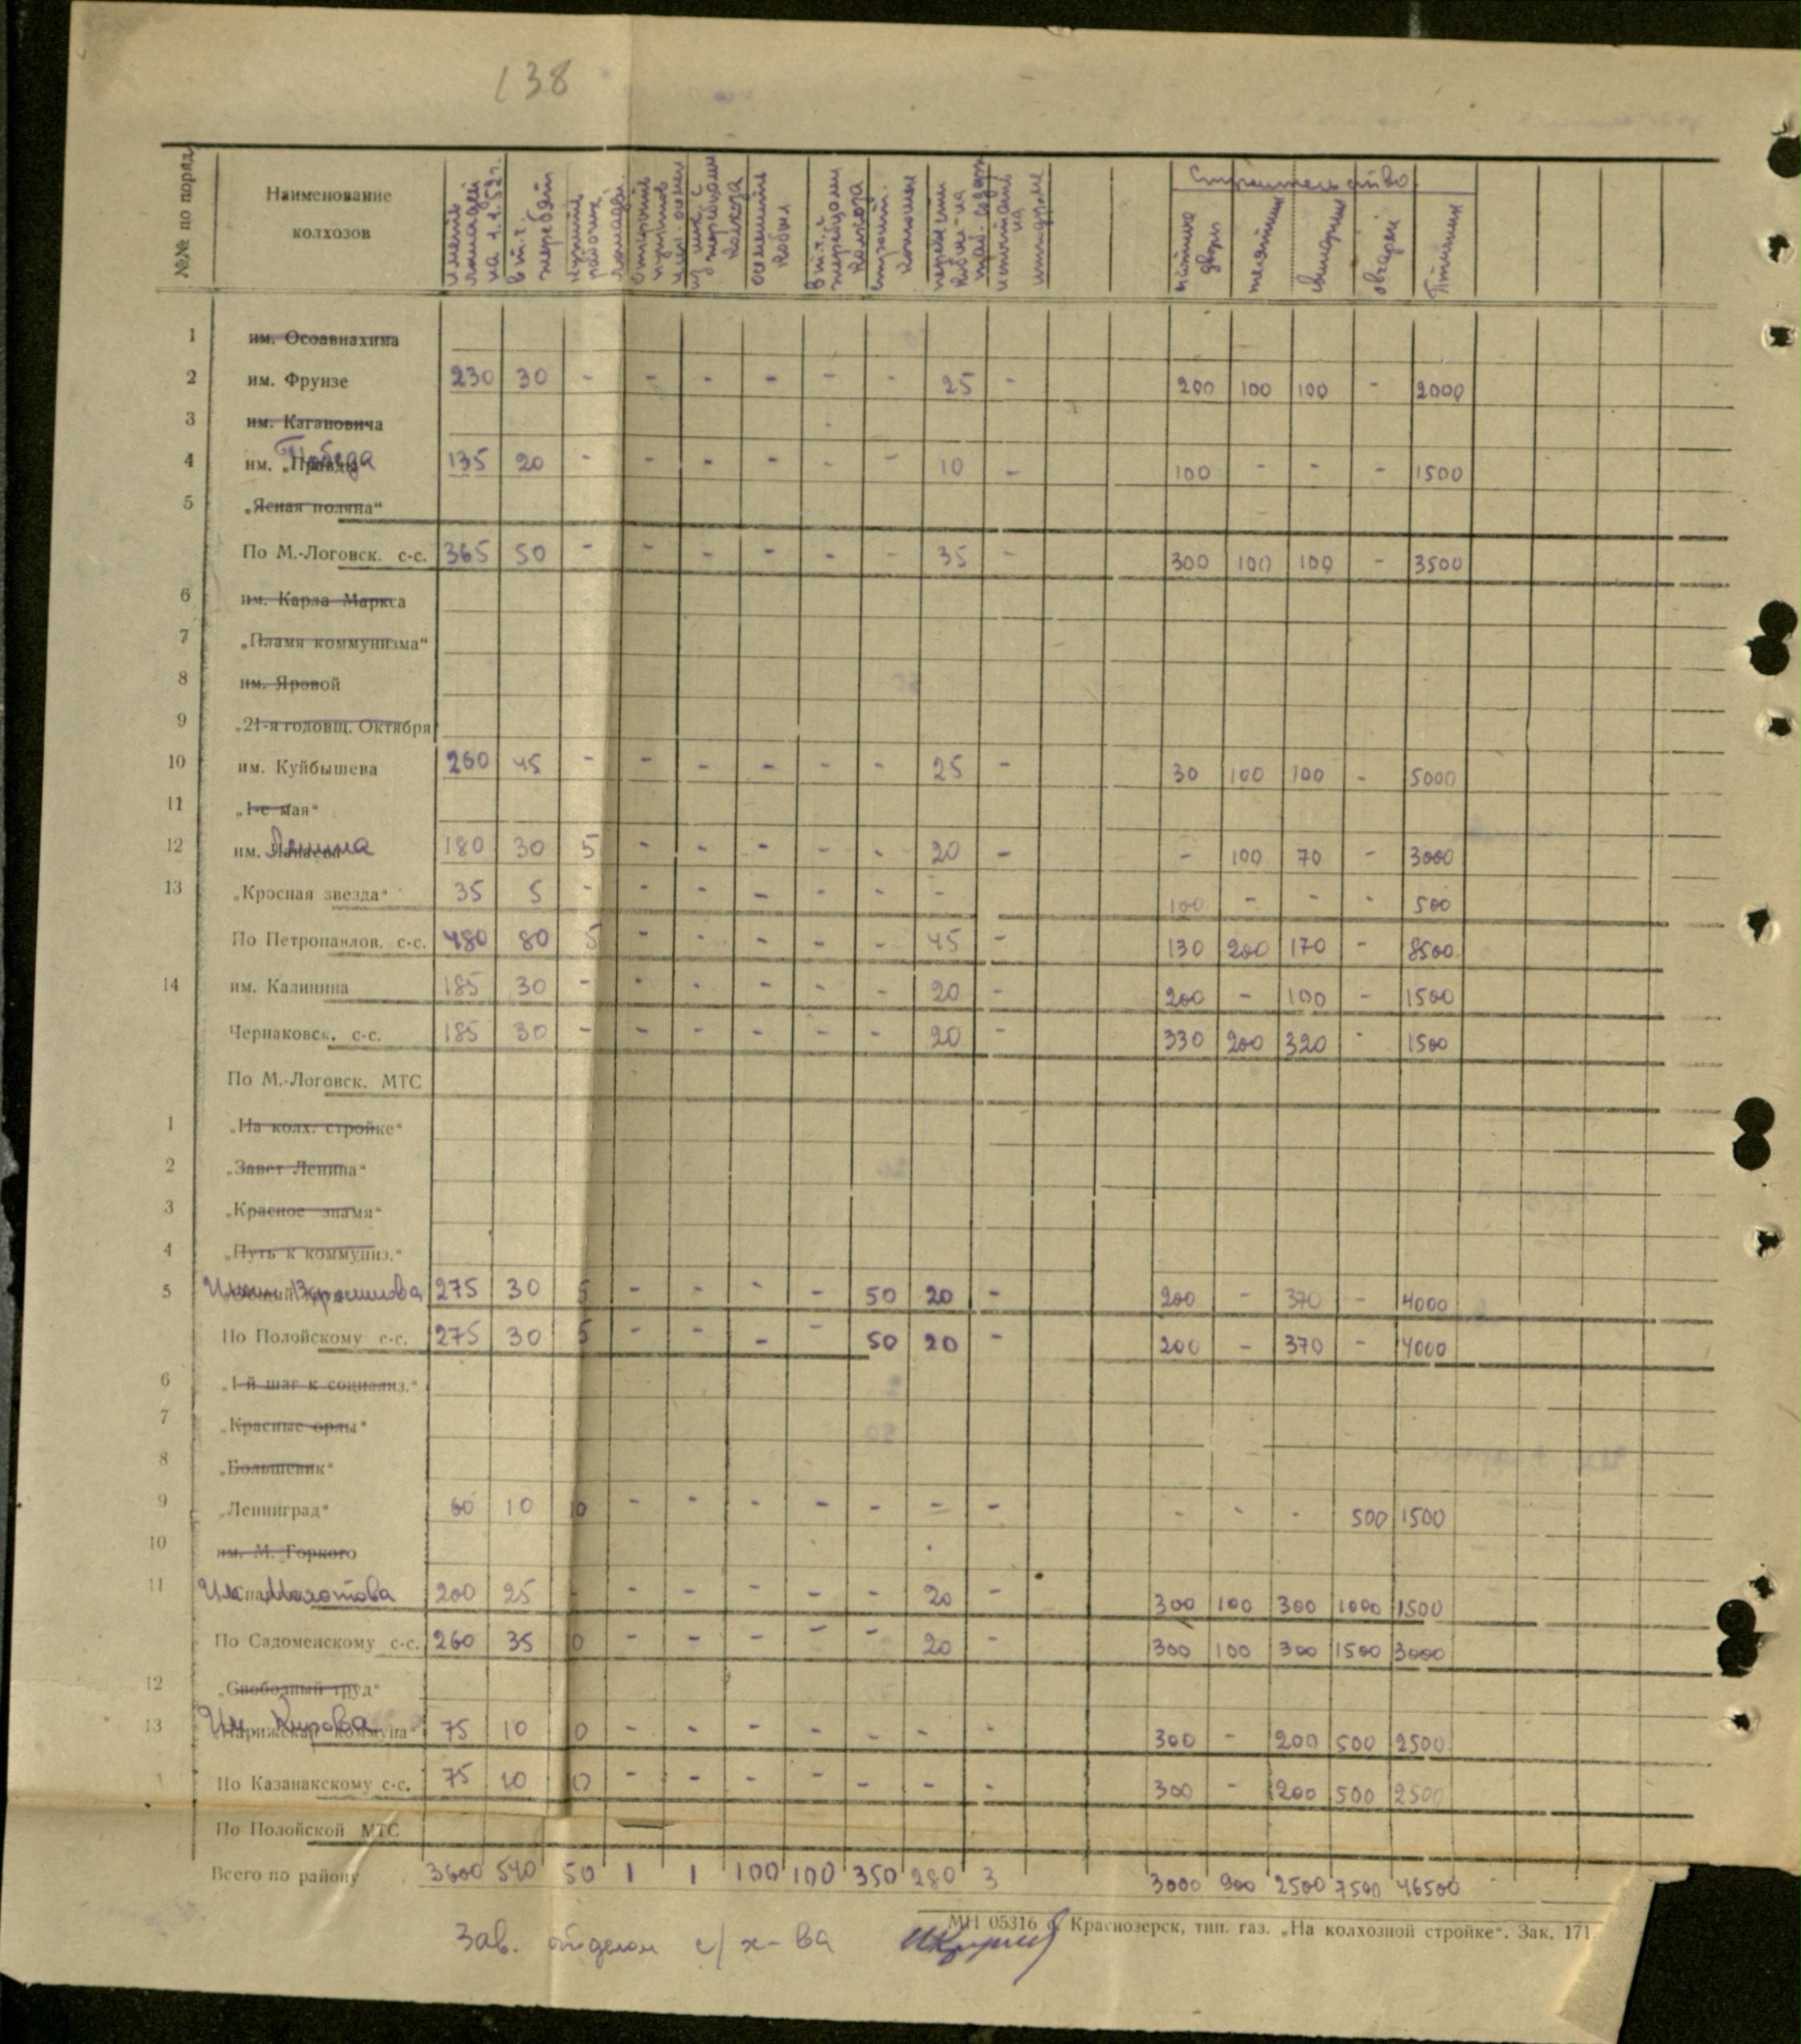 138
№№ по поряд.
Наименование колхозов
Иметь лошадей на 1.1.52г.
в т.ч. жеребят
Купить рабочих лошадей
осеменить кобыл
Строительство
скотные дворы
телятники
свинарники
овчарен
Птичник
1 им. Осоавиахима
2 им. Фрунзе 230 30 - - - - - - 25 - 200 100 100 - 2000
3 им. Кагановича
4 им. „Правды“ Победа 135 20 - - - - - - 10 - 100 - - - 1500
5 „Ясная поляна“
По М.-Логовск. с-с. 365 50 - - - - - - 35 - 300 100 100 - 3500
6 им. Карла Маркса
7 „Пламя коммунизма“
8 им. Яровой
9 „21-я годовщ. Октября
10 им. Куйбышева 260 45 - - - - - - 25 - 30 100 100 - 5000
11 „1-е мая“
12 им. Ленина 180 30 5 - - - - - 20 - - 100 70 - 3000
13 „Кросная звезда“ 35 5 - - - - - - - 100 - - - 500
По Петропавлов. с-с. 480 80 5 - - - - - 45 - 130 200 170 - 8500
14 им. Калинина 185 30 - - - - - - 20 - 200 - 100 - 1500
Чернаковск. с-с. 185 30 - - - - - - 20 - 330 200 320 - 1500
По М.-Логовск. МТС
1 „На колх. стройке“
2 „Завет Ленина“
3 „Красное знамя“
4 „Путь к коммуниз.“
5 Имени Ворошилова 275 30 5 - - - - 50 20 - 200 - 370 - 4000
По Полойскому с-с. 275 30 5 - - - - 50 20 - 200 - 370 - 4000
6 „1-й шаг к социализ.“
7 „Красные орлы“
8 „Большевик“
9 „Ленинград“ 60 10 10 - - - - - - - - - - 500 1500
10 им. М. Горкого
11 Им Молотова 200 25 - - - - - - 20 - 300 100 300 1000 1500
По Садоменскому с-с. 260 35 0 - - - - - 20 - 300 100 300 1500 3000
12 „Свободный труд“
13 „Парижская коммуна“ Им Кирова 75 10 0 - - - - - - - 300 - 200 500 2500
По Казанакскому с-с. 75 10 0 - - - - - - - 300 - 200 500 2500
По Полойской МТС
Всего по району 3600 540 50 1 1 100 100 350 280 3 3000 900 2500 7500 46500
МН 05316 г. Краснозерск, тип. газ. „На колхозной стройке“. Зак. 171
Зав. отделом с/х-ва